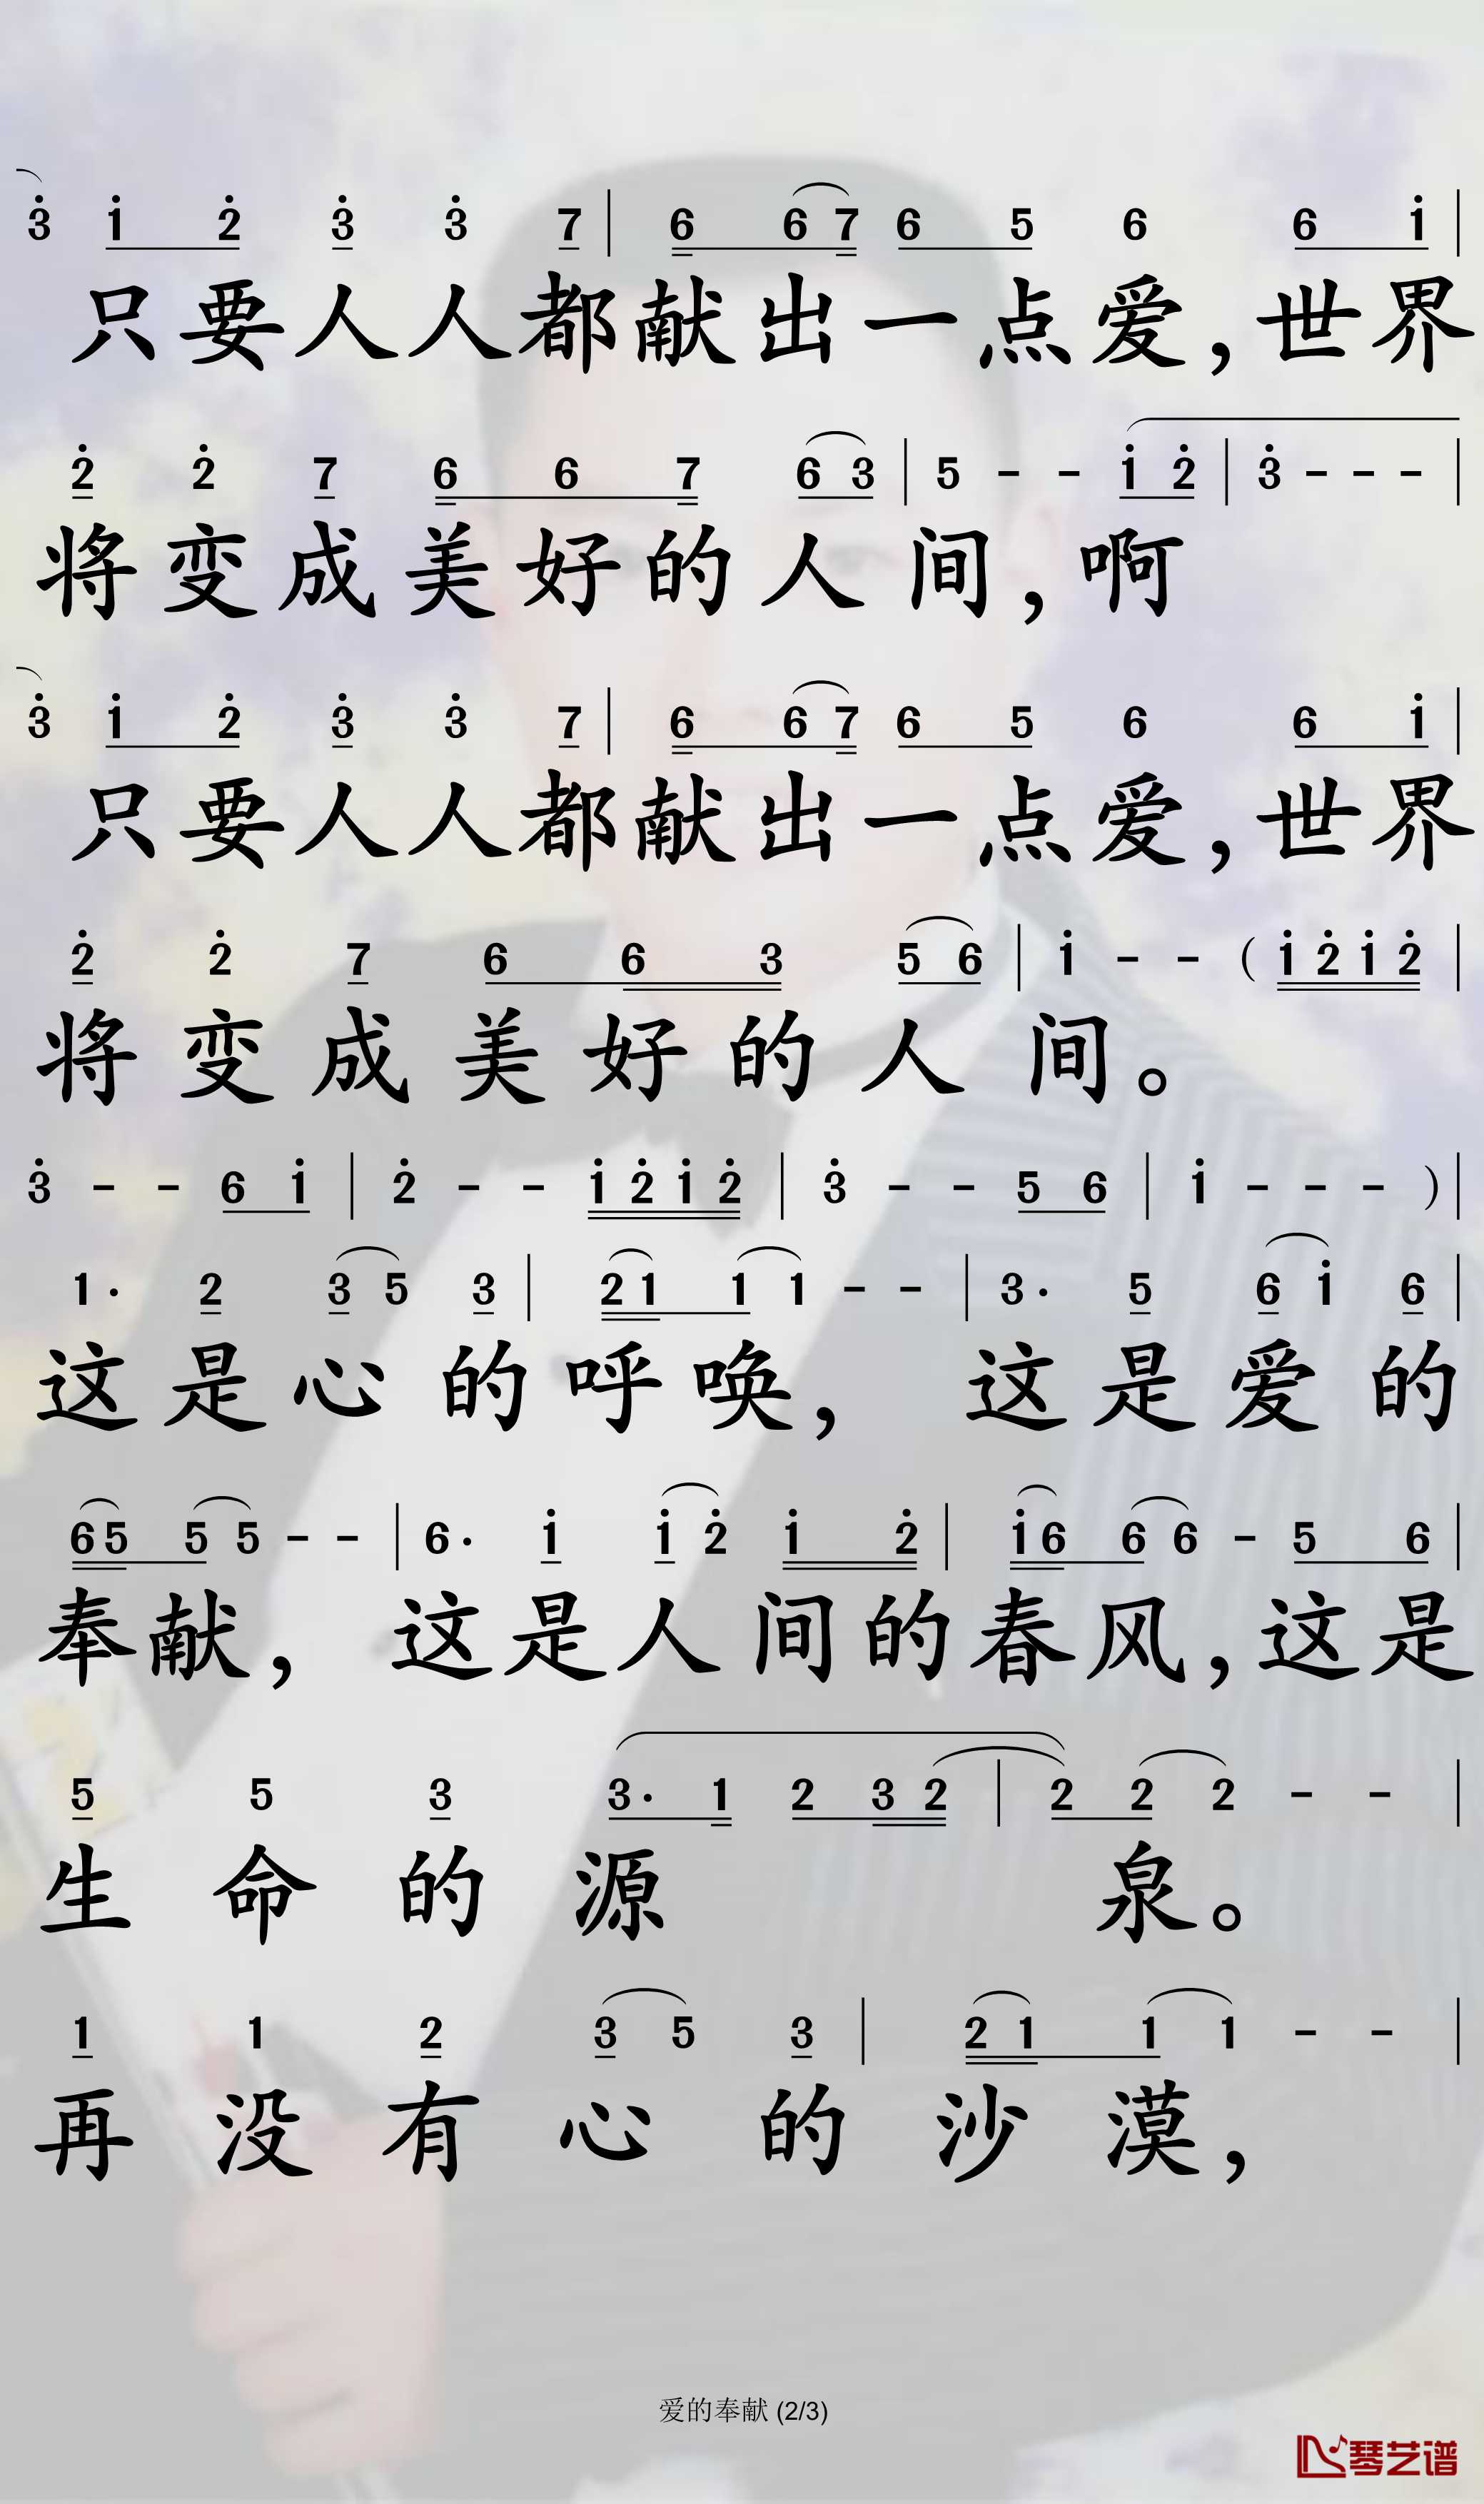 3̇ 1̇ 2̇ 3̇ 3̇ 7 | 6 6 7 6 5 6 6 1̇ |
只要人人都献出一点爱，世界
2̇ 2̇ 7 6 6 7 6 3 | 5 - - 1̇ 2̇ | 3̇ - - - |
将变成美好的人间，啊
3̇ 1̇ 2̇ 3̇ 3̇ 7 | 6 6 7 6 5 6 6 1̇ |
只要人人都献出一点爱，世界
2̇ 2̇ 7 6 6 3 5 6 | 1̇ - - ( 1̇ 2̇ 1̇ 2̇ |
将变成美好的人间。
3̇ - - 6 1̇ | 2̇ - - 1̇ 2̇ 1̇ 2̇ | 3̇ - - 5 6 | 1̇ - - - ) |
1· 2 3 5 3 | 2 1 1 1 - - | 3· 5 6 1̇ 6 |
这是心的呼唤，这是爱的
6 5 5 5 - - | 6· 1̇ 1̇ 2̇ 1̇ 2̇ | 1̇ 6 6 6 - 5 6 |
奉献，这是人间的春风，这是
5 5 3 3· 1 2 3 2 | 2 2 2 - - |
生命的源泉。
1 1 2 3 5 3 | 2 1 1 1 - - |
再没有心的沙漠，
爱的奉献 (2/3)
琴艺谱